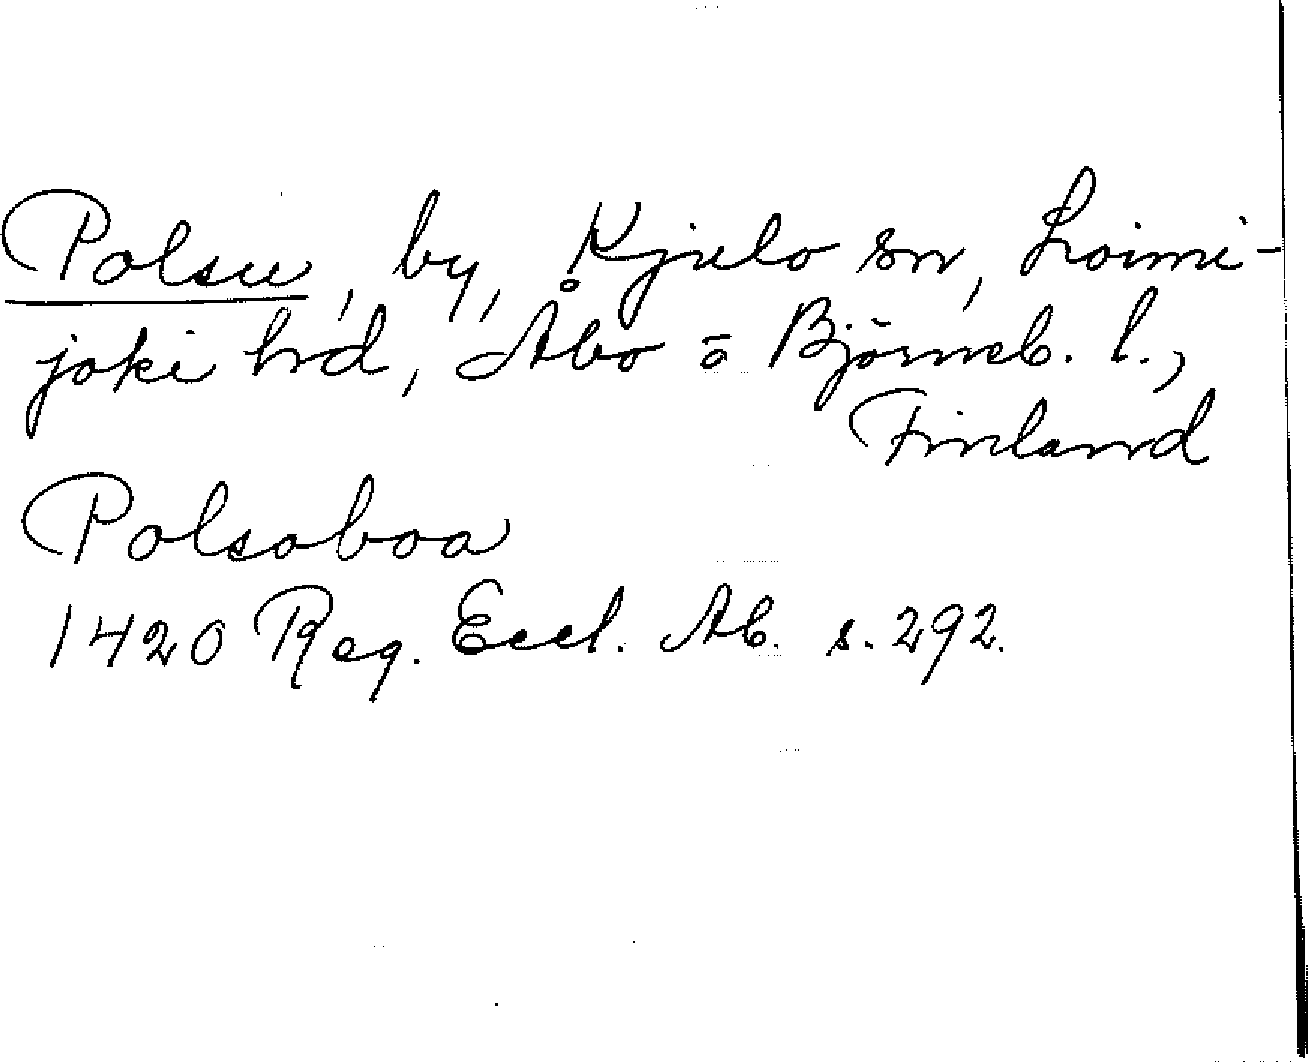 Polsu, by, Kjulo sn, Loimi-
joki hrd, Åbo o Björneb. l.,
Finland
Polsoboa
1420 Reg. Eccl. Ab. s. 292.